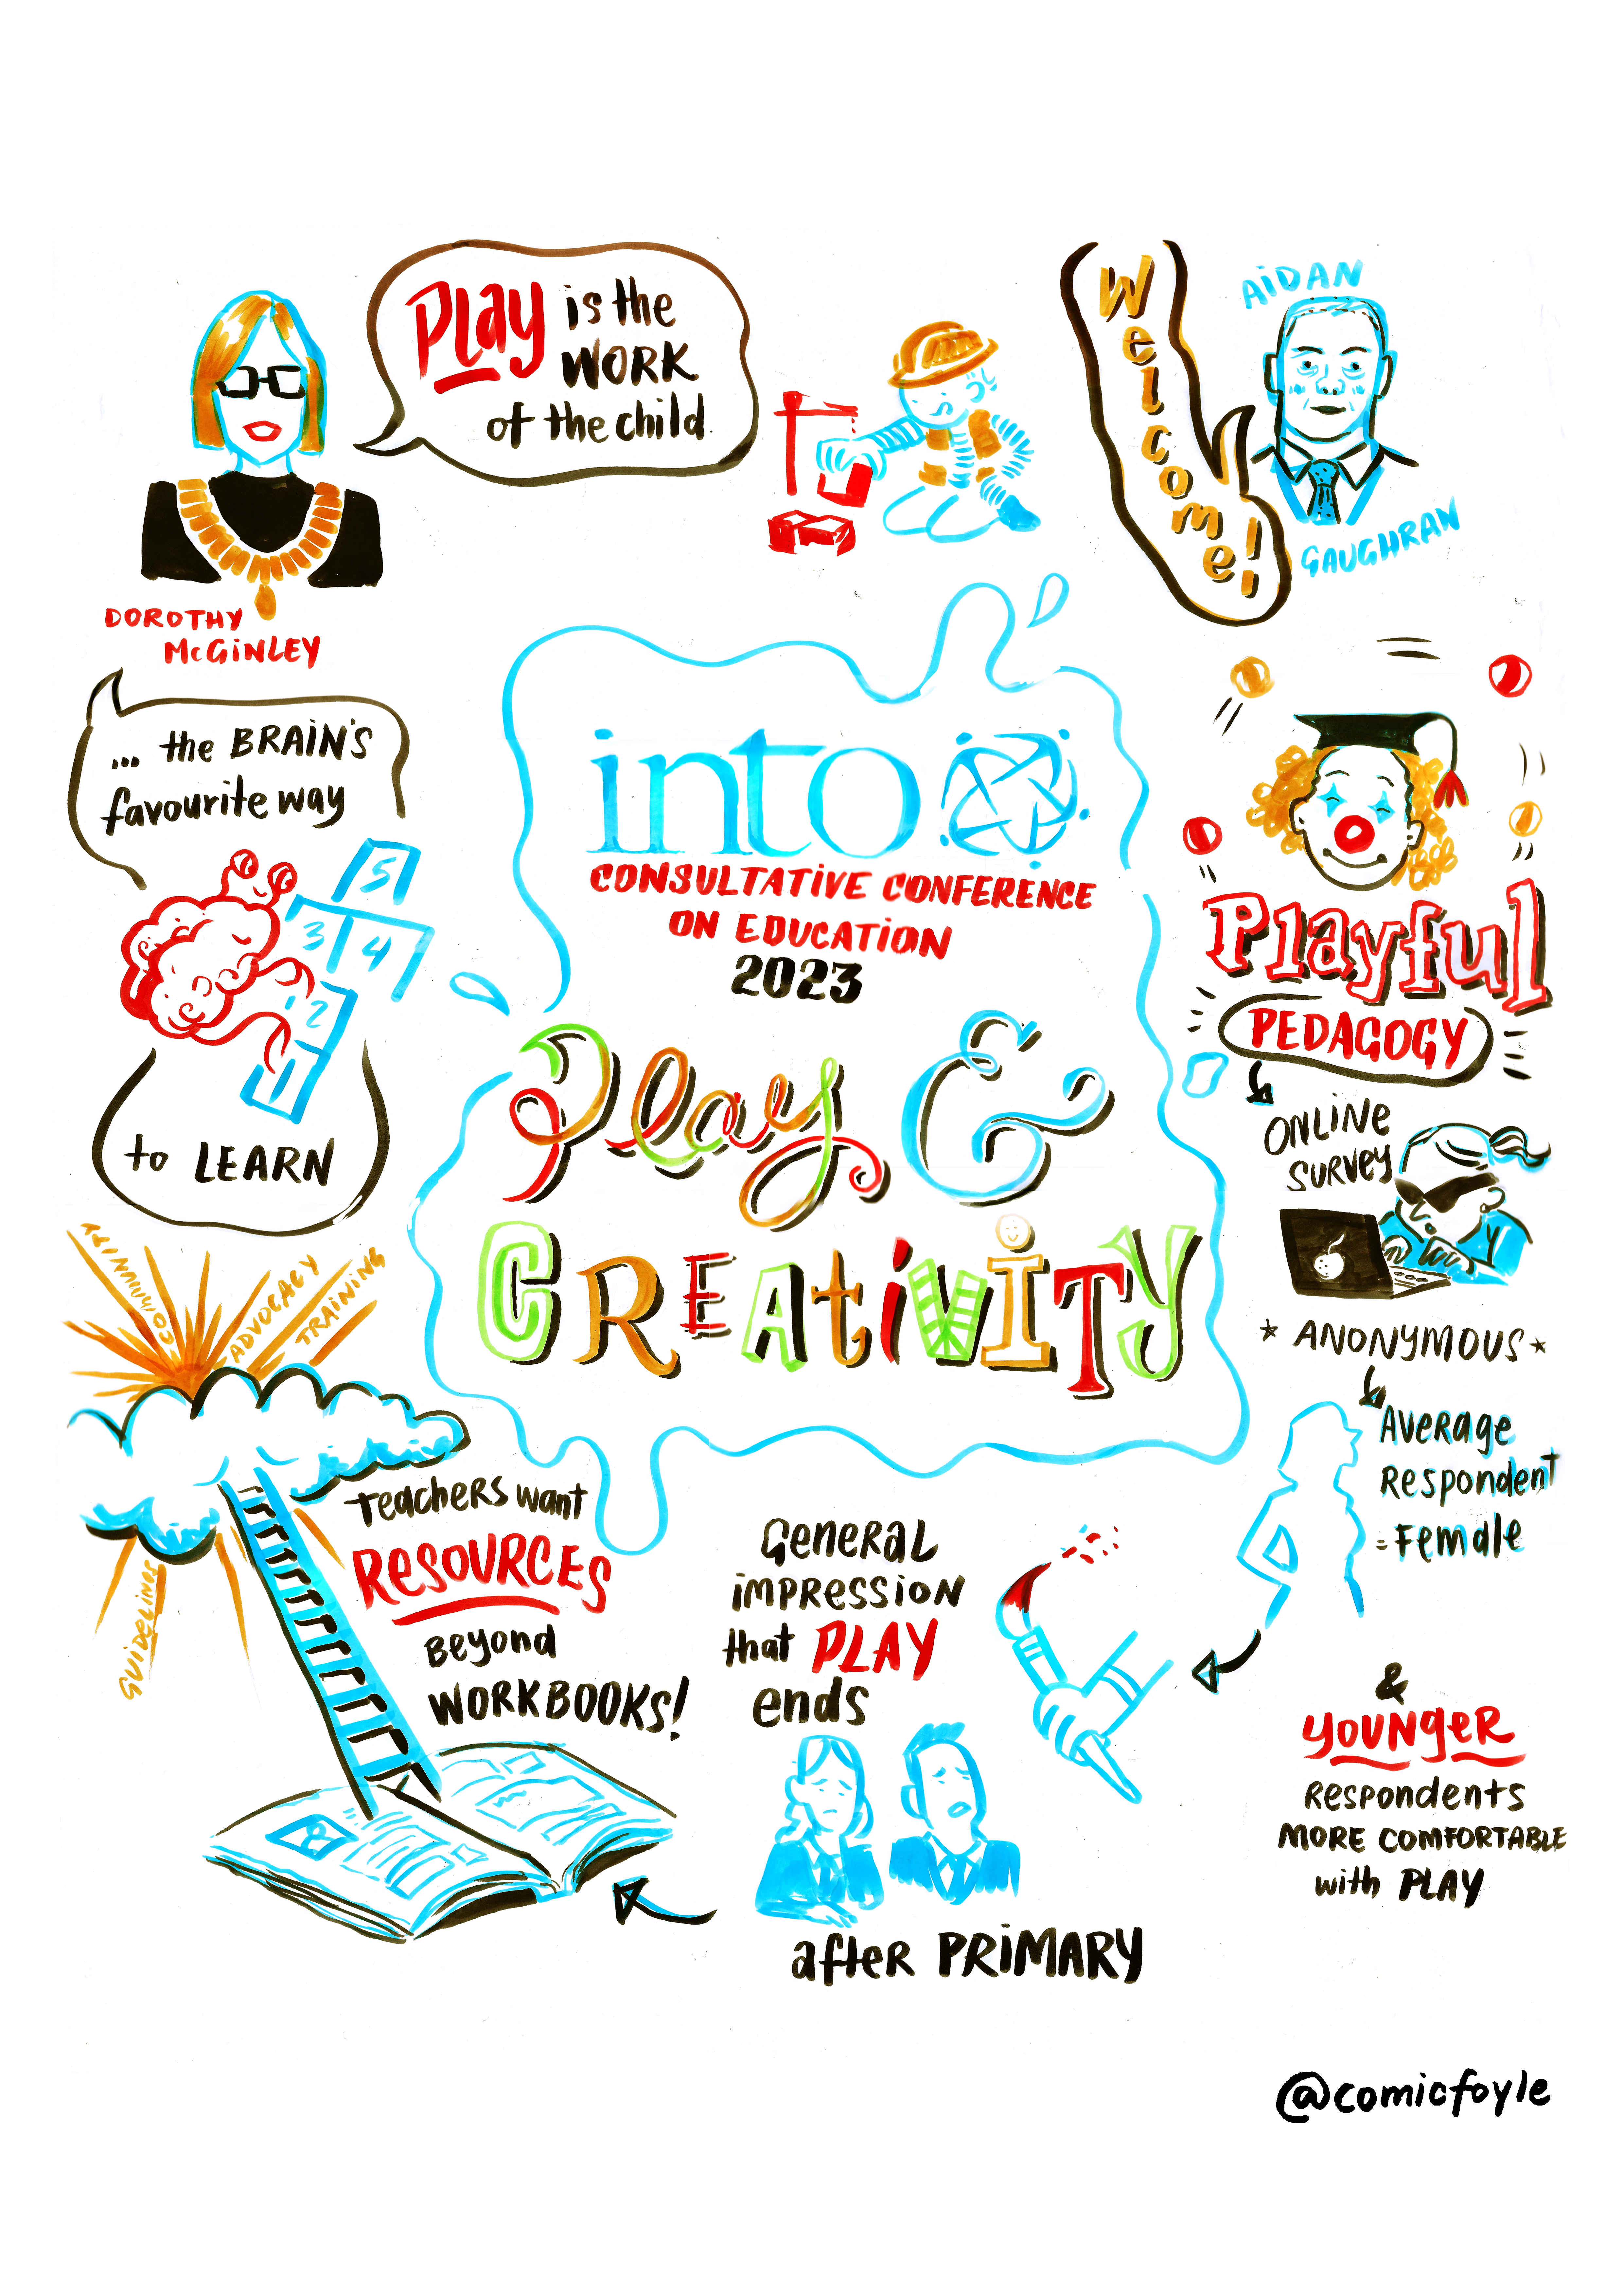 Play is the
WORK
of the child
DOROTHY
McGINLEY
Welcome!
AIDAN
GAUGHRAN
... the BRAIN'S
favourite way
5
3 4
1 2
1
to LEARN
into
CONSULTATIVE CONFERENCE
ON EDUCATION
2023
Play &
CREAtiViTY
Playful
PEDAGOGY
ONLINE
SURVEY
* ANONYMOUS *
Average
Respondent
= Female
&
YOUNGER
Respondents
MORE COMFORTABLE
with PLAY
COMMUNITY
ADVOCACY
TRAINING
GUIDELINES
Teachers want
RESOURCES
Beyond
WORKBOOKS!
General
impression
that PLAY
ends
after PRIMARY
@comicfoyle